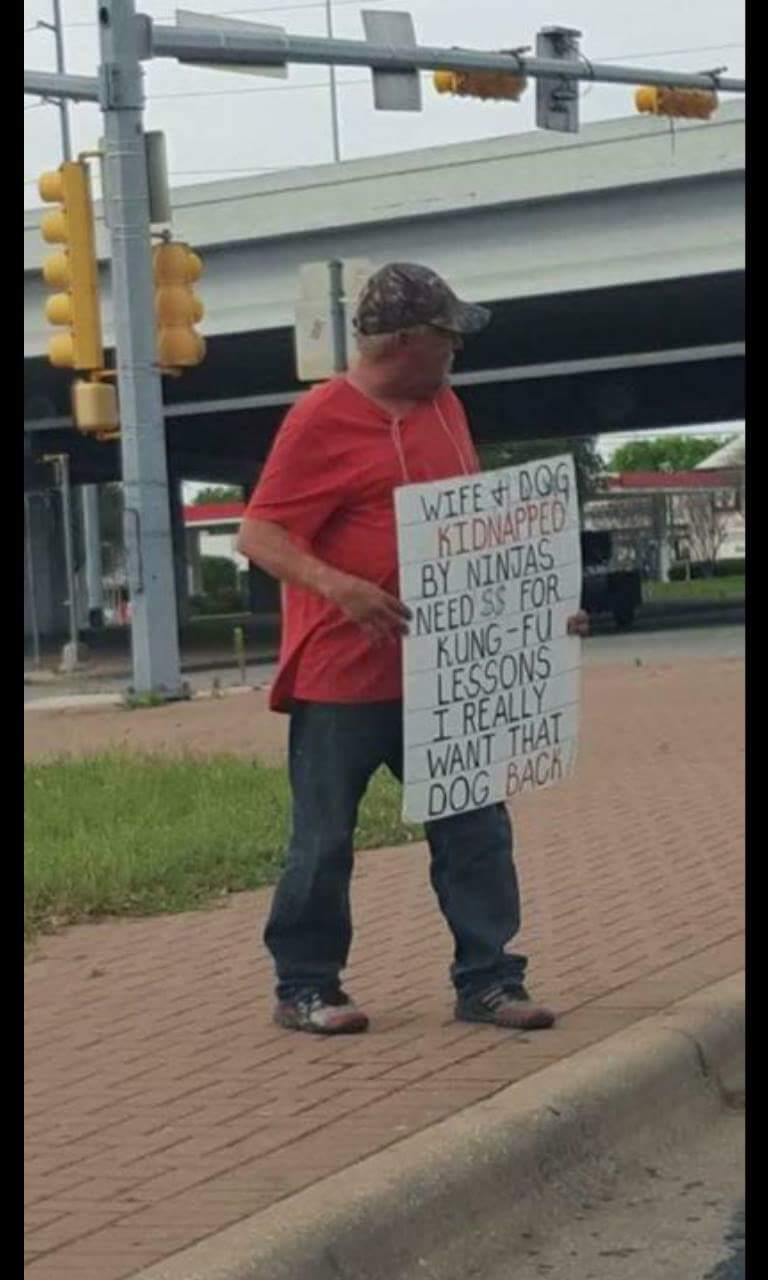 WIFE & DOG
KIDNAPPED
BY NINJAS
NEED $$ FOR
KUNG-FU
LESSONS
I REALLY
WANT THAT
DOG BACK!